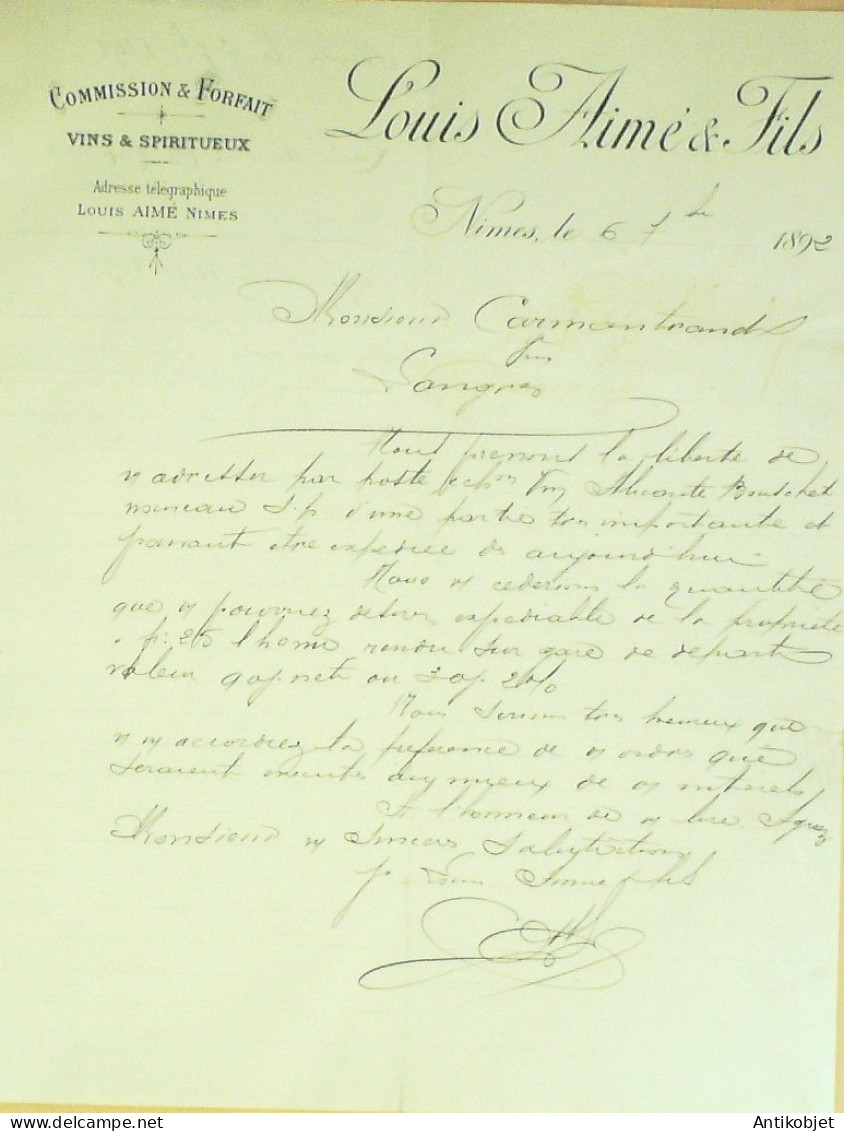 COMMISSION & FORFAIT
VINS & SPIRITUEUX
Adresse télégraphique
LOUIS AIMÉ NIMES
Louis Aimé & Fils
Nimes, le 6 7bre 1892
Monsieur Carmantrand
Langres
Nous prenons la liberté de
v adresser par poste echon Alicante Bouschet
nouveau s.p. d'une partie très importante et
pouvant être expédiée dès aujourd'hui
Nous v céderions la quantité
que v pourriez désirer expédiable de la propriété
fr: 25 l'hecto rendu sur gare de départ
valeur 90j. net ou 30j. 2%
Nous serions très heureux que
v n accordiez la préférence de v ordres qui
seraient exécutés au mieux de v intérêts
l'honneur de v lire Agréez
Monsieur n sincères salutations
p. Louis Aimé & fils
Antikobjet